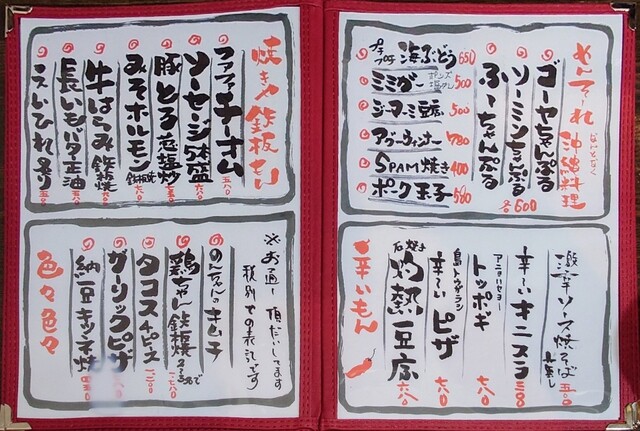 めんそーれ
沖縄料理
なんとなく
ゴーヤちゃんぷる
ソーミンちゃんぷる
ふーちゃんぷる
各600
プチプチ 海ぶどう 650
ミミガー ポンズ 500
ジーマーミ豆腐 500
アグーウィンナー 780
SPAM焼き 400
ポーク玉子 580
焼き〆鉄板もい
ファファチーオム 五八〇
ソーセージ5本盛
豚とろ葱塩炒
みそホルモン 鉄板焼
牛はらみ 鉄板焼
長いもバター正油
えいひれ炙り
激辛ソース焼そば 五〇〇
辛〜いオニスラ 三〇〇
アニョハセヨー
トッポギ 七八〇
島トウガラシ
辛〜いピザ 六八〇
石焼き
灼熱豆腐 六八〇
辛〜いもん
※お通し頂だいしてます
税別での表記です
のんちゃんのキムチ
鶏ちゃん鉄板焼
タコスチピネ
ガーリックピザ
納豆キツネ焼
色々色々